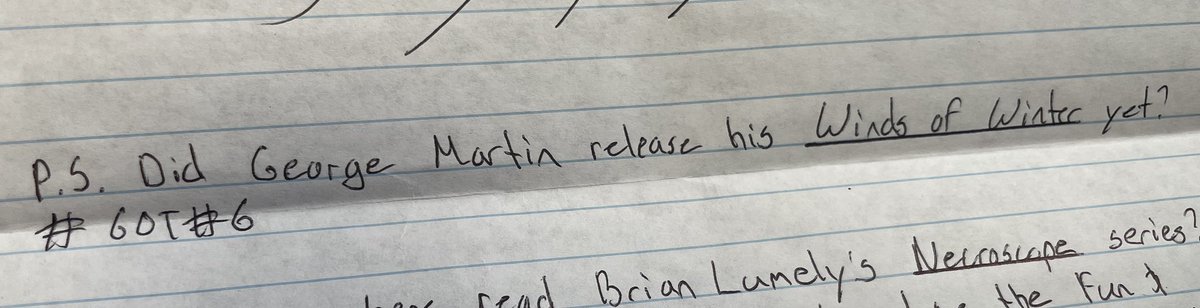 P.S. Did George Martin release his Winds of Winter yet?
# GOT#6
read Brian Lumely's Necroscope series?
the Fun